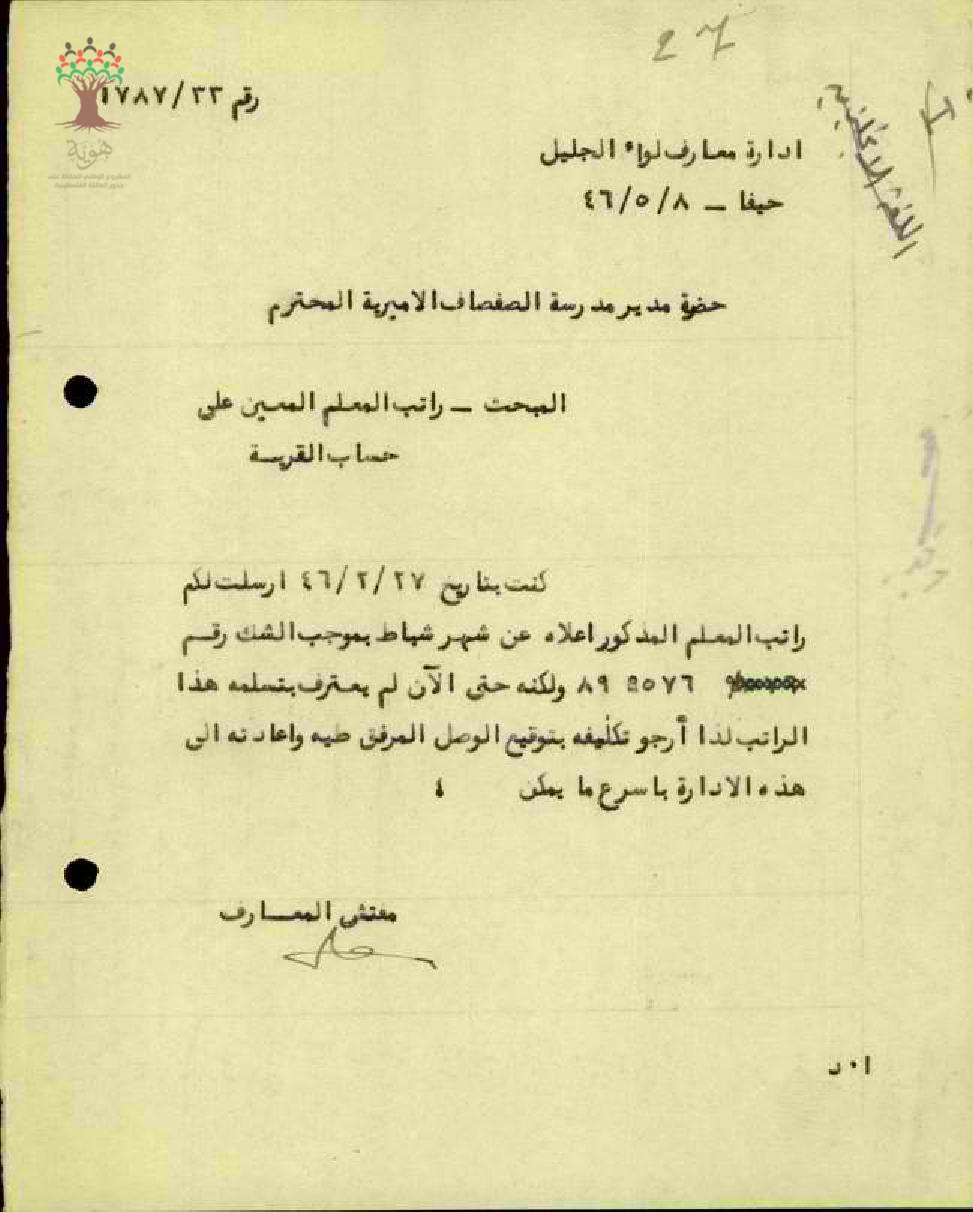 27
رقم ١٧٨٧/٢٢
هوية
المشروع الوطني للحفاظ على
جذور العائلة الفلسطينية
I
اللغة الانكليزية
ادارة معارف لواء الجليل
حيفا – ٤٦/٥/٨
حضرة مدير مدرسة الصفصاف الاميرية المحترم
المبحث – راتب المعلم المعين على
حساب القرية
كنت بتاريخ ٤٦/٢/٢٧ ارسلت لكم
راتب المعلم المذكور اعلاه عن شهر شباط بموجب الشك رقم
٨٩ ٥٧٦ ولكنه حتى الآن لم يعترف بتسلمه هذا
الراتب لذا أرجو تكليفه بتوقيع الوصل المرفق طيه واعادته الى
هذه الادارة باسرع ما يمكن
مفتش المعارف
ا٠د